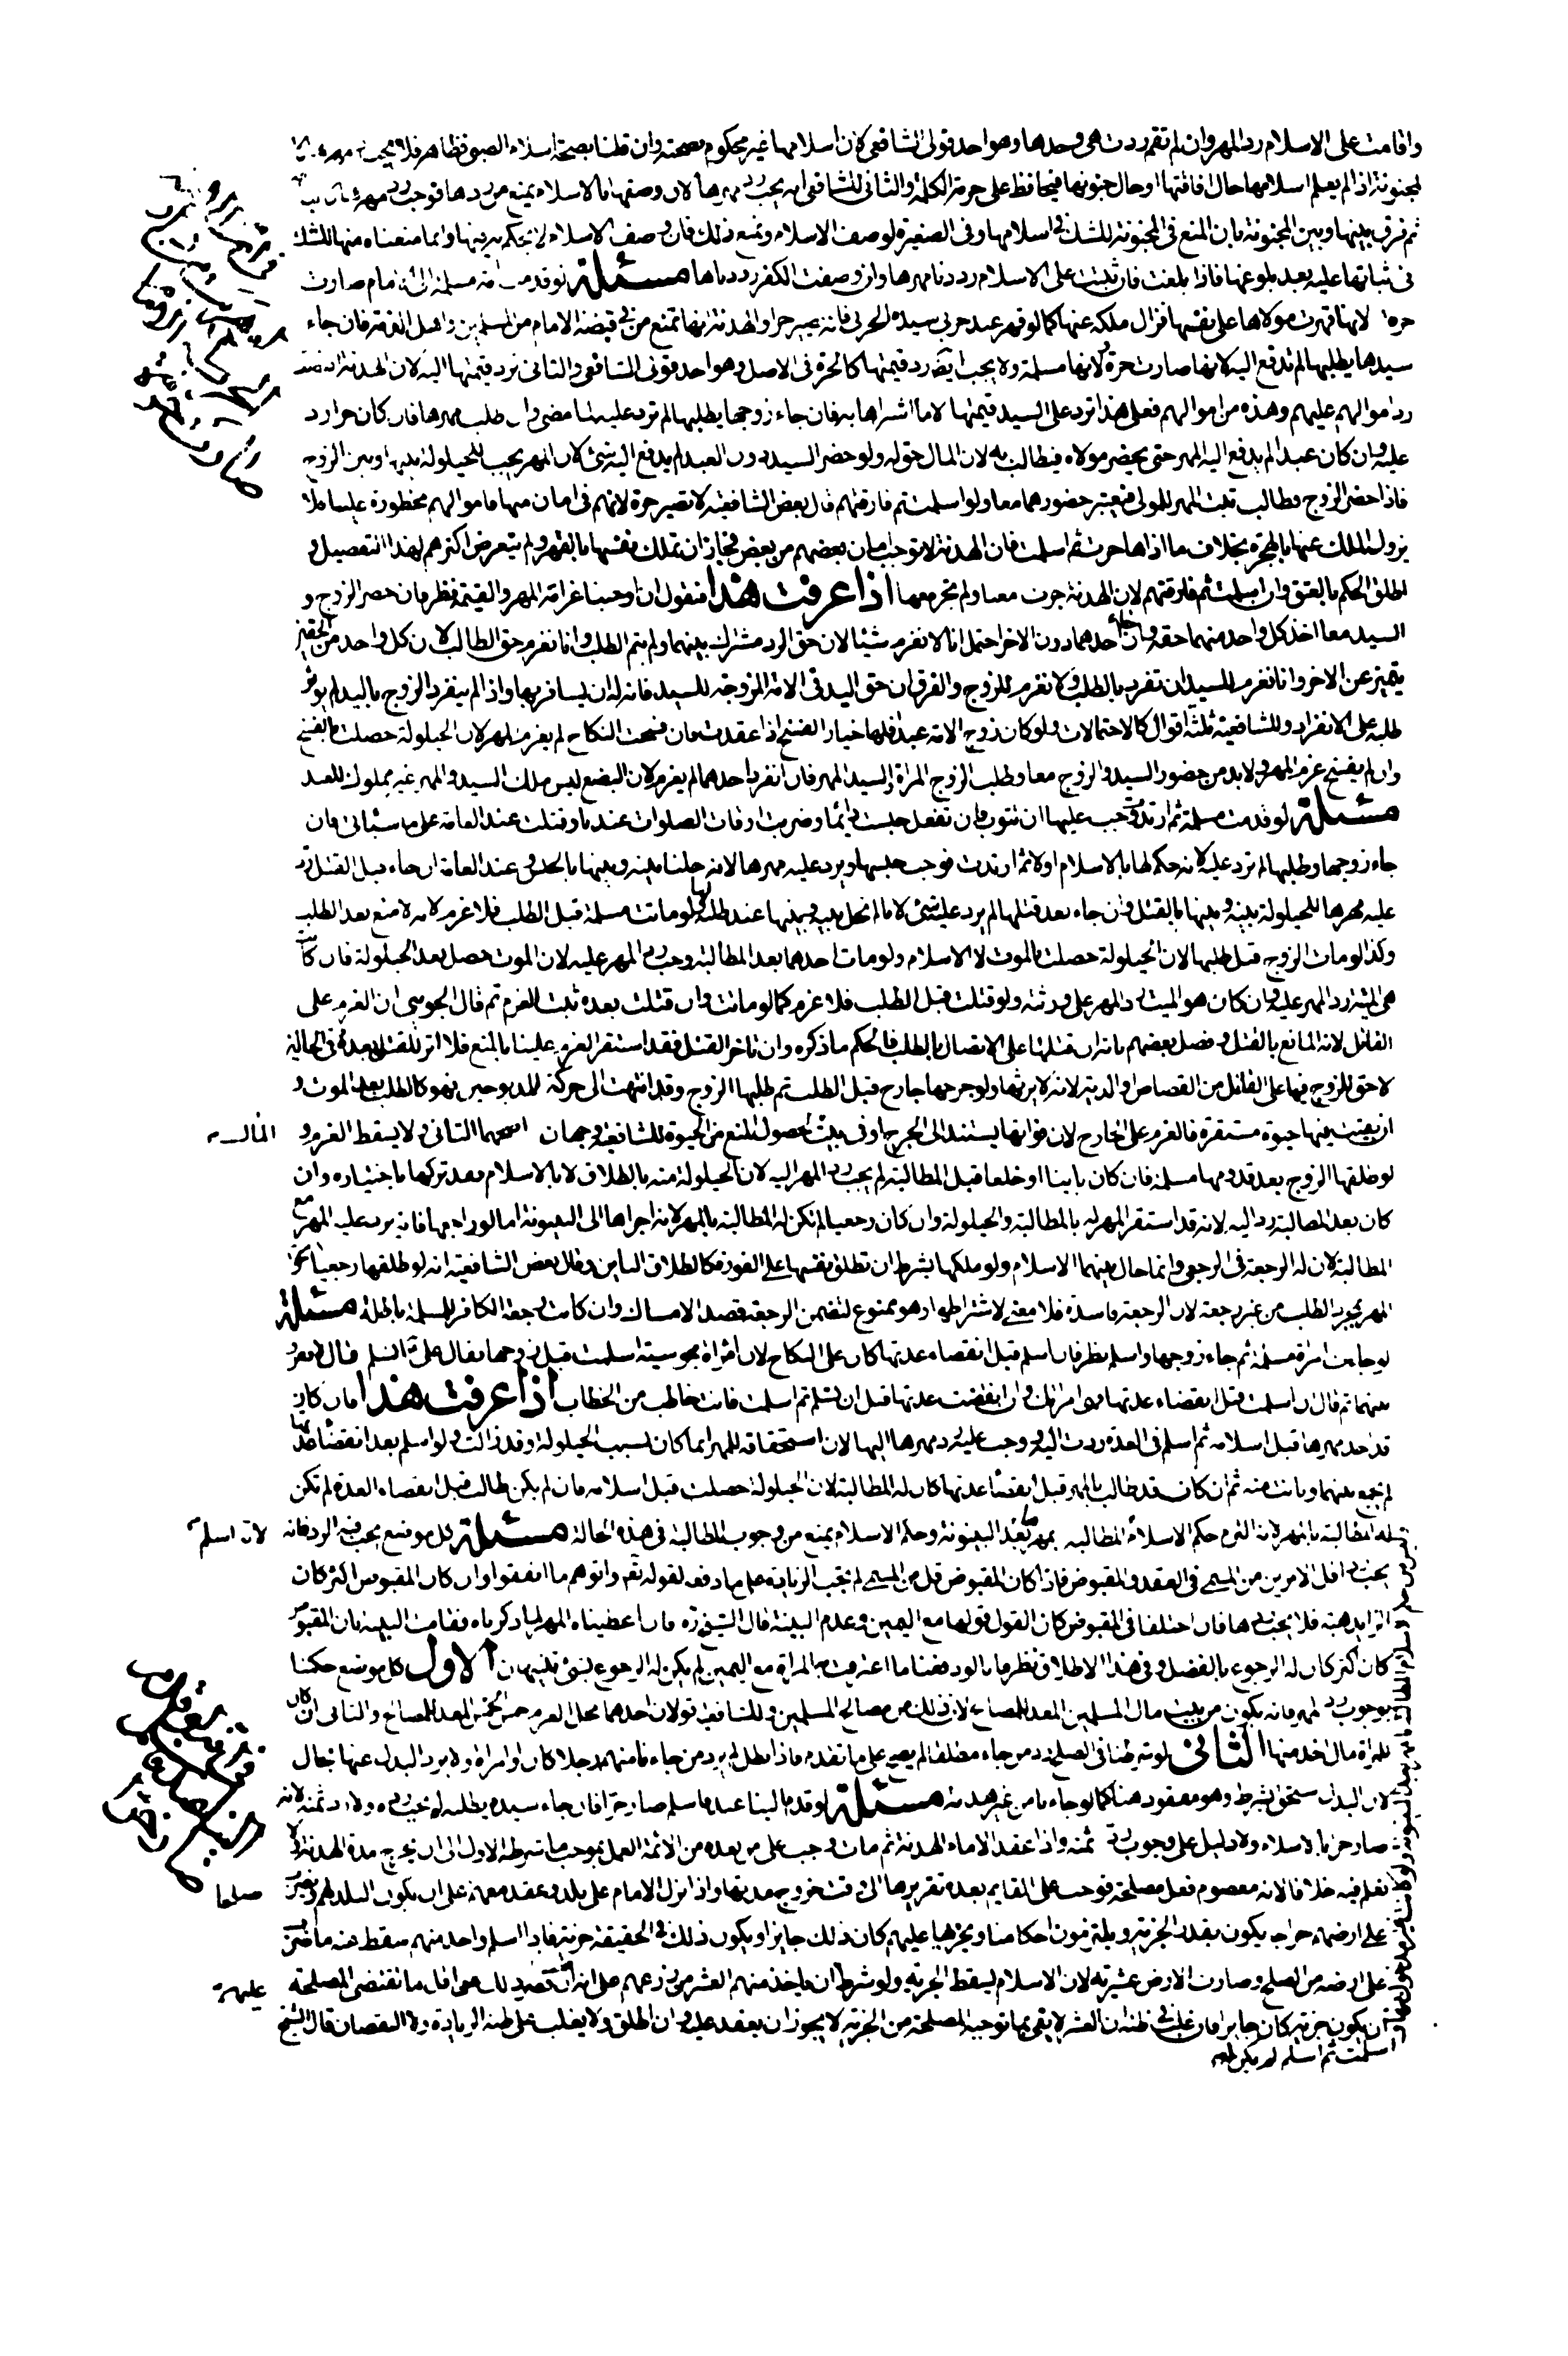 واقامت على الاسلام رد المهر وان لم تقم ردت هي وحدها وهو احد قولي الشافعي كان اسلامها غير محكوم بصحته وان قلنا بصحة اسلام الصبي فظاهر فلا يجب مهره
المجنونة اذا لم يعلم اسلامها حال افاقتها او حال جنونها فيحافظ على حرمة الكلمة والثاني للشافعي انه يجب رد مهرها لان وصفها بالاسلام يمنع من ردها فوجب رد مهره
ثم فرق بينها وبين المجنونة بان المنع في المجنونة للشك في اسلامها وفي الصغيرة لوصف الاسلام ونمنع ذلك فان وصف الاسلام لا يحكم به بينها وانما منعناه منها للشك
في ثباتها عليه بعد بلوغها فاذا بلغت فان ثبتت على الاسلام رددنا مهرها وان وصفت الكفر رددناها مسئلة لو قدمت امة مسلمة الى الامام صارت
حرة لانها قهرت مولاها على نفسها فزال ملكه عنها كما لو قهر عبد حربي سيده الحربي فانه يصير حرا والهدنة انها تمنع من في قبضة الامام من المسلمين واهل الذمة فان جاء
سيدها يطلبها لم تدفع اليه لانها صارت حرة ولانها مسلمة ولا يجب ايضا رد قيمتها كالحرة في الاصل وهو احد قولي الشافعي والثاني نرد قيمتها اليه لان الهدنة اقتضت
رد اموالهم عليهم وهذه من اموالهم فعلى هذا ترد على السيد قيمتها لا ما اشتراها به فان جاء زوجها يطلبها لم ترد عليه لما مضى وان طلب مهرها فان كان حرا رد
عليه وان كان عبدا لم يدفع اليه المهر حتى يحضر مولاه فيطالب به لان المال حق له ولو حضر السيد دون العبد لم يدفع اليه شئ لان المهر يجب للحيلولة بينها وبين الزوج
فاذا حضر الزوج وطالب ثبت المهر للمولى فيعتبر حضورهما معا ولو اسلمت ثم فارقتهم قال بعض الشافعية لا تصير حرة لانهم في امان منها فاموالهم محظورة عليها فلا
يزول الملك عنها بالهجرة بخلاف ما اذا هاجرت ثم اسلمت فان الهدنة لا توجب امان بعضهم من بعض فجاز ان تملك نفسها بالقهر ولم يتعرض اكثرهم لهذا التفصيل و
اطلق الحكم بالعتق وان اسلمت ثم فارقتهم لان الهدنة جرت معنا ولم تجر معها اذا عرفت هذا فنقول ان اوجبنا غرامة المهر والقيمة نظر فان حضر الزوج و
السيد معا اخذ كل واحد منهما حقه وان جاء احدهما دون الاخر احتمل انا لا نغرم شيئا لان حق الرد مشترك بينهما ولم يتم الطلب وانا نغرم حق الطالب لان كل واحد من الحقين
يتميز عن الاخر وانا نغرم للسيد ان تفرد بالطلب ولا نغرم للزوج والفرق ان حق اليد في الامة المزوجة للسيد فانه له ان يسافر بها واذا لم ينفرد الزوج باليد لم يؤثر
طلبه على الانفراد وللشافعية ثلثة اقوال كالاحتمالات ولو كان زوج الامة عبدا فلها خيار الفسخ اذا عتقت فان فسخت النكاح لم يغرم المهر لان الحيلولة حصلت بالفسخ
وان لم يفسخ غرم المهر ولا بد من حضور السيد والزوج معا وطلب الزوج المراة والسيد المهر فان انفرد احدهما لم يغرم لان البضع ليس ملك السيد والمهر غير مملوك للعبد
مسئلة لو قدمت مسلمة ثم ارتدت وجب عليها ان تتوب فان لم تفعل حبست دائما وضربت اوقات الصلوات عندنا وقتلت عند العامة على ما سيأتي فان
جاء زوجها وطلبها لم ترد عليه لانه حكم لها بالاسلام اولا ثم ارتدت فوجب حبسها ويرد عليه مهرها لانه حلنا بينه وبينها بالحبس وعند العامة ان جاء قبل القتل رد
عليه مهرها للحيلولة بينه وبينها بالقتل وان جاء بعد قتلها لم يرد عليه شئ لانا لم نحل بينه وبينها عند طلبه لها ولو ماتت مسلمة قبل الطلب فلا غرم لانه لا منع بعد الطلب
وكذا لو مات الزوج قبل طلبها لان الحيلولة حصلت بالموت لا الاسلام ولو مات احدهما بعد المطالبة وجب رد المهر عليه لان الموت حصل بعد الحيلولة فان كانت
هي الميتة رد المهر عليه وان كان هو الميت رد المهر على ورثته ولو قتلت قبل الطلب فلا غرم كما لو ماتت وان قتلت بعده ثبت الغرم ثم قال الجويني ان الغرم على
القاتل لانه المانع بالقتل وفصل بعضهم بانه ان قتلها على الاتصال بالطلب فالحكم ما ذكره وان تاخر القتل فقد استقر الغرم علينا بالمنع فلا اثر للقتل بعده وفي الحالين
لا حق للزوج فيما على القاتل من القصاص او الدية لانه لا يرثها ولو جرحها جارح قبل الطلب ثم طلبها الزوج وقد انتهت الى حركة المذبوحين فهو كالطلب بعد الموت و
ان بقيت فيها حيوة مستقرة فالغرم على الجارح لان فواتها يستند الى الجرح او في بيت لحصول المنع في الحيوة للشافعية وجهان اصحهما الثاني ولا يسقط الغرم و المال
لو طلقها الزوج بعد قدومها مسلمة فان كان باينا او خلعا قبل المطالبة لم يجب رد المهر اليه لان الحيلولة منه بالطلاق لا بالاسلام فقد تركها باختياره وان
كان بعد المطالبة رد اليه لانه قد استقر المهر له بالمطالبة والحيلولة وان كان رجعيا لم تكن له المطالبة بالمهر لانه اجراها الى البينونة اما لو راجعها فانه يرد عليه المهر مع
المطالبة لان له الرجعة في الرجعي وانما حال بينهما الاسلام ولو ملكها بشرط ان تطلق نفسها على الفور فكالطلاق الباين وقال بعض الشافعية انه لو طلقها رجعيا
المهر بمجرد الطلب من غير رجعة لان الرجعة فاسدة فلا معنى لاشتراطها وهو ممنوع لتضمن الرجعة قصد الامساك وان كانت رجعة الكافر للمسلمة باطلة مسئلة
لو جاءت امراة مسلمة ثم جاء زوجها واسلم نظر فان اسلم قبل انقضاء عدتها كان على النكاح لان امراة مجوسية اسلمت قبل زوجها فقال علي عليه السلم قال لا يفرق
بينهما ثم قال ان اسلمت قبل انقضاء عدتها فهي امراتك وان انقضت عدتها قبل ان تسلم ثم اسلمت فانت خاطب من الخطاب اذا عرفت هذا فان كان
قد اخذ مهرها قبل اسلامه ثم اسلم في العدة ردت اليه ووجب عليه رد مهرها اليها لان استحقاقه للمهر انما كان لسبب الحيلولة وقد زالت ولو اسلم بعد انقضاء عدتها
لم يجمع بينهما وبانت منه ثم ان كان قد طالب بالمهر قبل انقضاء عدتها كان له المطالبة لان الحيلولة حصلت قبل اسلامه فان لم يكن طالب قبل انقضاء العدة لم تكن
له المطالبة بالمهر لانه التزم حكم الاسلام المطالبة بمهرها بعد البينونة وحكم الاسلام يمنع من وجوب المطالبة في هذه الحالة مسئلة كل موضع يجب فيه الرد فانه لانه اسلم
يجب رد اقل الامرين من المسمى في العقد والمقبوض فاذا كان المقبوض اقل من المسمى لم تجب الزيادة على ما دفعه لقوله تعم واتوهم ما انفقوا وان كان المقبوض اكثر كان
الزايد هبة فلا يجب ردها فان اختلفا في المقبوض كان القول قولها مع اليمين وعدم البينة قال الشيخ ره فان اعطيناه المهر لما ذكرناه فقامت البينة بان المقبوض
كان اكثر كان له الرجوع بالفضل وفي هذا الاطلاق نظر فانا لو دفعنا ما اعترفت به المراة مع اليمين لم يكن له الرجوع بشئ تنبيهان الاول كل موضع حكمنا
بوجوب رد المهر فانه يكون من بيت مال المسلمين المعد للمصالح لان ذلك من مصالح المسلمين وللشافعية قولان احدهما محل الغرم خمس الخمس المعد للمصالح والثاني ان كان
للمراة مال اخذ منها الثاني لو شرطنا في الصلح رد من جاء مطلقا لم يصح على ما تقدم فاذا بطل لم يرد من جاءنا منهم رجلا كان او امراة ولا يرد البدل عنها بحال
لان البدل استحق بشرط وهو مفقود هنا كما لو جاءنا من غير هدنة مسئلة لو قدم الينا عبد فاسلم صار حرا فان جاء سيده يطلبه لم يجب رده ولا رد ثمنه لانه
صار حرا بالاسلام ولا دليل على وجوب رد ثمنه واذا عقد الامام الهدنة ثم مات وجب على من بعده من الائمة العمل بموجب ما شرطه الاول الى ان يخرج مدة الهدنة لا
نعلم فيه خلافا لانه معصوم فعل مصلحة فوجب على القايم بعده تقريرها الى وقت خروج مدتها واذا نزل الامام على بلد وعقد معهم على ان يكون البلد لهم ويضرب صلحا
على ارضهم خراجا يكون بقدر الجزية ويلتزمون احكامنا ويجريها عليهم كان ذلك جايزا ويكون ذلك في الحقيقة جزية فاذا اسلم واحد منهم سقط عنه ما ضرب
على ارضه من الصلح وصارت الارض عشرية لان الاسلام يسقط الجزية ولو شرط ان ياخذ منهم العشر من زرعهم على انه متى قصر ذلك عن اقل ما تقتضي المصلحة عليهم
ان يكون جزية كان جايزا فان غلب في ظنه ان العشر لا يفي بما توجبه المصلحة من الجزية لا يجوز ان يعقد عليه وان اطلق ولا يغلب على ظنه الزيادة ولا النقصان قال الشيخ
اسلمت ثم اسلم لم يكن له